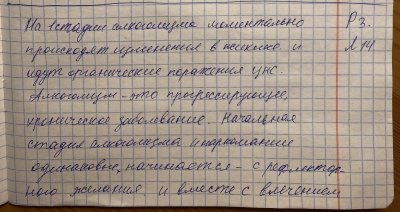 На 1 стадии алкоголизма моментально
происходят изменения в психике и
идут органические поражения цнс.
Алкоголизм - это прогрессирующее,
хроническое заболевание. Начальная
стадия алкоголизма и наркомании
одинаковые, начинается - с рефлектор-
ного желания и вместе с влечением
Р 3.
Л 14.